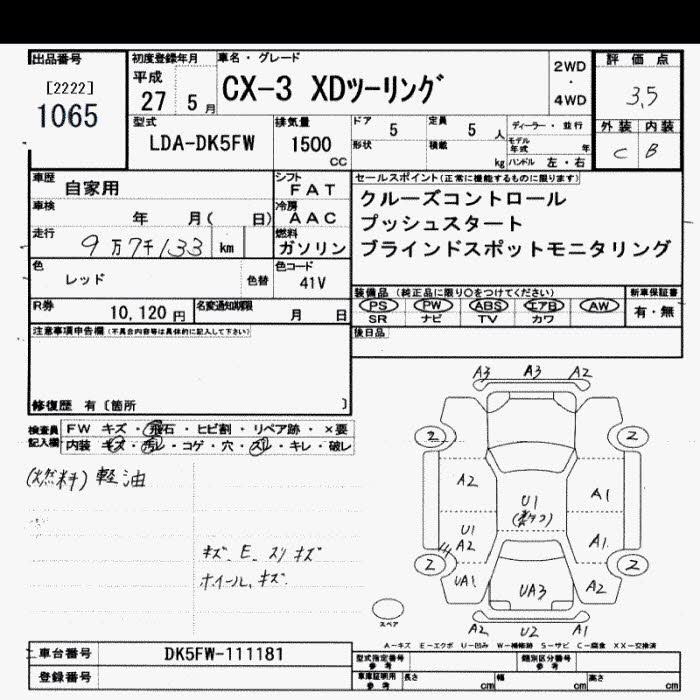 出品番号
[2222]
1065
初度登録年月
平成
27 5 月
車名・グレード
CX-3 XDツーリング
2WD
・
4WD
評価点
3.5
外装 内装
C B
型式
LDA-DK5FW
排気量
1500
CC
ドア 5
定員 5 人
ディーラー・並行
形状
積載 kg
モデル年式 年
ハンドル 左・右
車歴
自家用
シフト
FAT
車検
年 月( 日)
冷房
AAC
走行
9万7千133 km
燃料
ガソリン
色
レッド
色替
色コード
41V
R券
10,120 円
名変通知期限
月 日
セールスポイント(正常に機能するものに限ります)
クルーズコントロール
プッシュスタート
ブラインドスポットモニタリング
装備品 (純正品に限り○をつけてください)
新車保証書
PS PW ABS エアB AW
SR ナビ TV カワ
有・無
後日品
注意事項申告欄(不具合内容等は具体的に記入して下さい)
修復歴 有〔箇所 〕
検査員記入欄
FW キズ・飛石・ヒビ割・リペア跡・×要
内装 キズ・汚レ・コゲ・穴・スレ・キレ・破レ
(燃料) 軽油
キズ、E、スリキズ
ホイール、キズ
A3 A3 A2
2 2
A2
U1
A1
U1
A2
A1
2 2
UA1
UA3
A2
A2 U2 A1
スペア
A−キズ E−エクボ U−凹み W−補修跡 S−サビ C−腐食 XX−交換済
車台番号
DK5FW-111181
登録番号
型式指定番号
参考
類別区分番号
参考
車庫証明用
参考
長さ cm 幅 cm 高さ cm